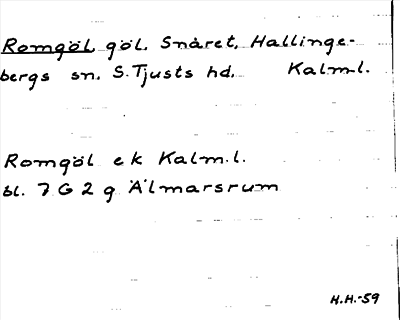 Romgöl, göl, Snåret, Hallinge-
bergs sn. S. Tjusts hd. Kalm.l.
Romgöl ek Kalm.l.
bl. 7 G 2 g Älmarsrum
H.H.-59